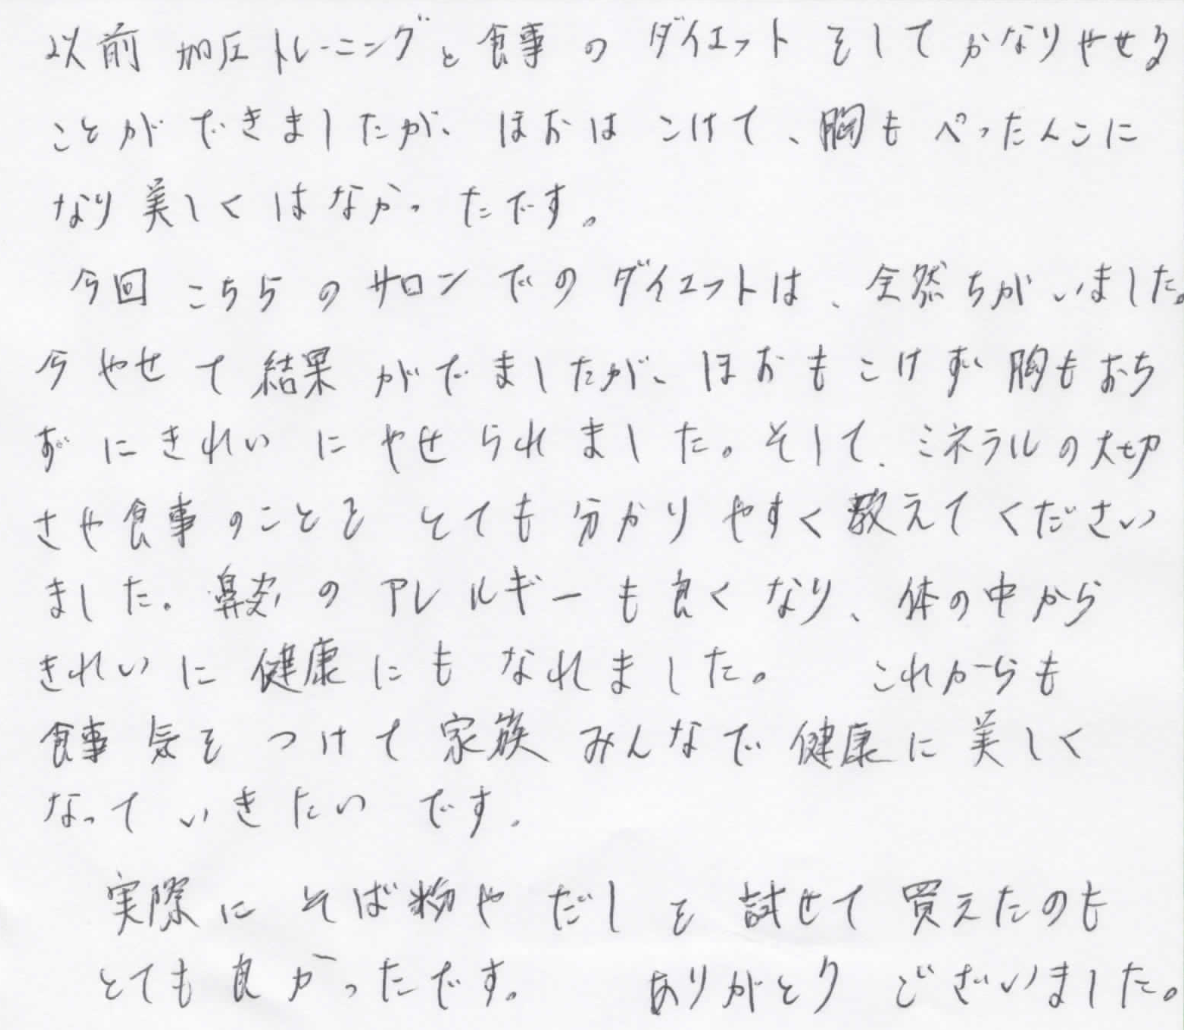 以前 加圧トレーニングと食事のダイエットをしてかなりやせる
ことができましたが、ほおはこけて、胸もぺったんこに
なり美しくはなかったです。
今回こちらのサロンでのダイエットは、全然ちがいました。
今やせて結果がでましたが、ほおもこけず胸もおち
ずにきれいにやせられました。そして、ミネラルの大切
さや食事のことをとても分かりやすく教えてください
ました。鼻炎のアレルギーも良くなり、体の中から
きれいに健康にもなれました。 これからも
食事気をつけて家族みんなで健康に美しく
なっていきたいです。
実際にそば粉やだしを試せて買えたのも
とても良かったです。 ありがとうございました。